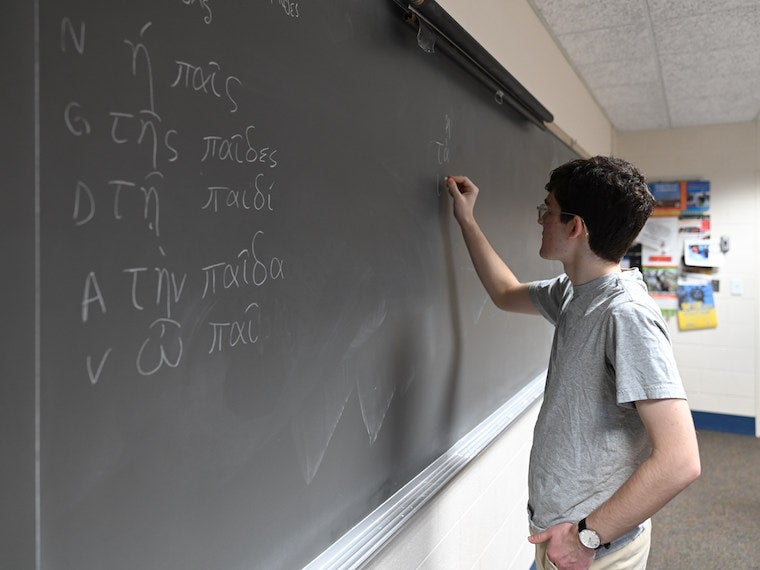 N ἡ παῖς
G τῆς παῖδες
D τῇ παιδί
A τὴν παῖδα
V ὦ παῖ